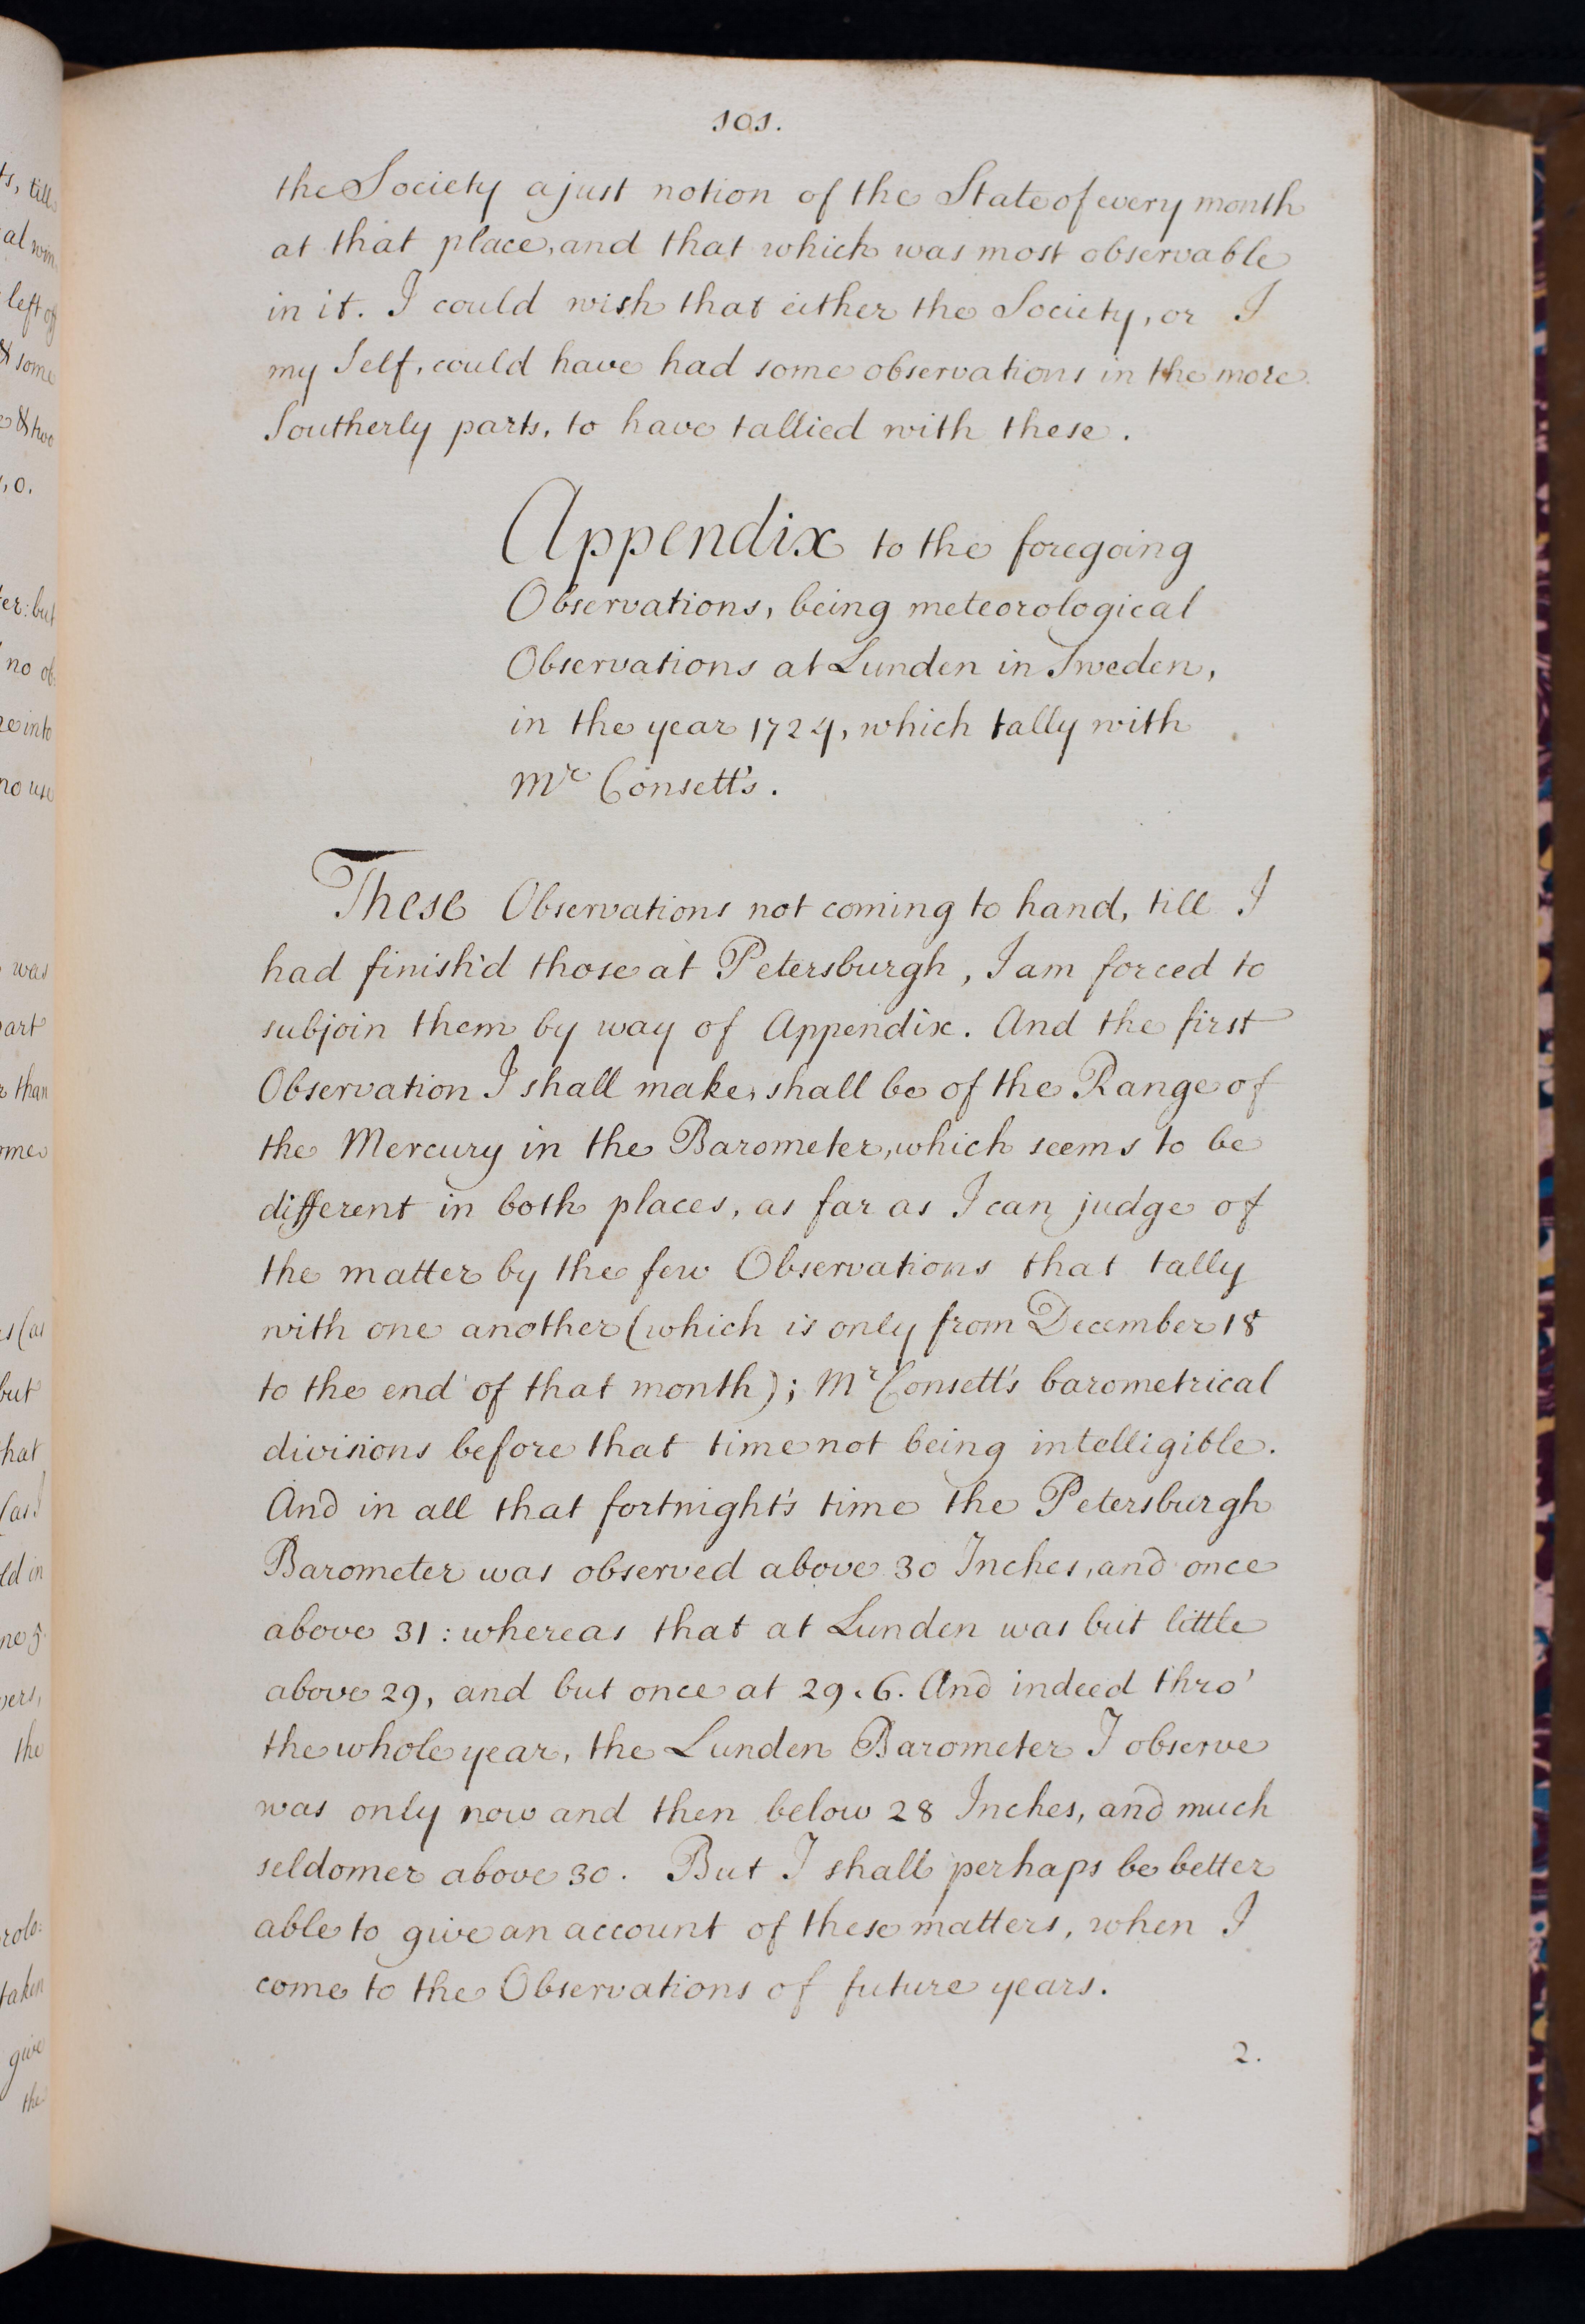 101.
the Society a just notion of the State of every month
at that place, and that which was most observable
in it. I could wish that either the Society, or I
my Self, could have had some observations in the more
Southerly parts, to have tallied with these.
Appendix to the foregoing
Observations, being meteorological
Observations at Lunden in Sweden,
in the year 1724, which tally with
Mr Consett's.
These Observations not coming to hand, till I
had finish'd those at Petersburgh, I am forced to
subjoin them by way of Appendix. And the first
Observation I shall make, shall be of the Range of
the Mercury in the Barometer, which seems to be
different in both places, as far as I can judge of
the matter by the few Observations that tally
with one another (which is only from December 18
to the end of that month); Mr Consett's barometrical
divisions before that time not being intelligible.
And in all that fortnight's time the Petersburgh
Barometer was observed above 30 Inches, and once
above 31: whereas that at Lunden was but little
above 29, and but once at 29.6. And indeed thro'
the whole year, the Lunden Barometer I observe
was only now and then below 28 Inches, and much
seldomer above 30. But I shall perhaps be better
able to give an account of these matters, when I
come to the Observations of future years.
2.